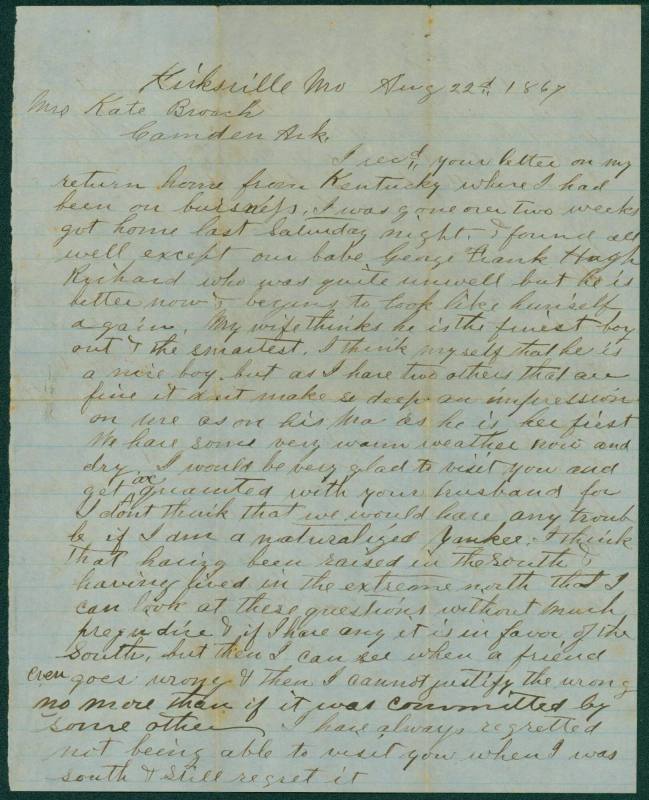 Kirksville Mo Aug 22d, 1867
Mrs Kate Broach
Camden Ark.
I recd, your letter on my
return home from Kentucky where I had
been on bursness, I was gone over two weeks
got home last Saturday night. I found all
well except our babe George Frank Hugh
Richard who was quite unwell but he is
better now & begins to look like himself
again. My wife thinks he is the finest boy
out & the smartest. I think myself that he is
a nice boy but as I have two others that are
fine it dont make so deep an impression
on me as on his Ma as he is her first
We have some very warm weather now and
dry. I would be very glad to visit you and
get acquainted with your husband for
I dont think that we would have any troub
le if I am a naturalized Yankee. I think
that having been raised in the South &
having lived in the extreme north that I
can look at these questions without much
prejudice & if I have any it is in favor of the
South, but then I can see when a friend
even goes wrong & then I cannot justify the wrong
no more than if it was committed by
some other I have always regretted
not being able to visit you when I was
south & still regret it